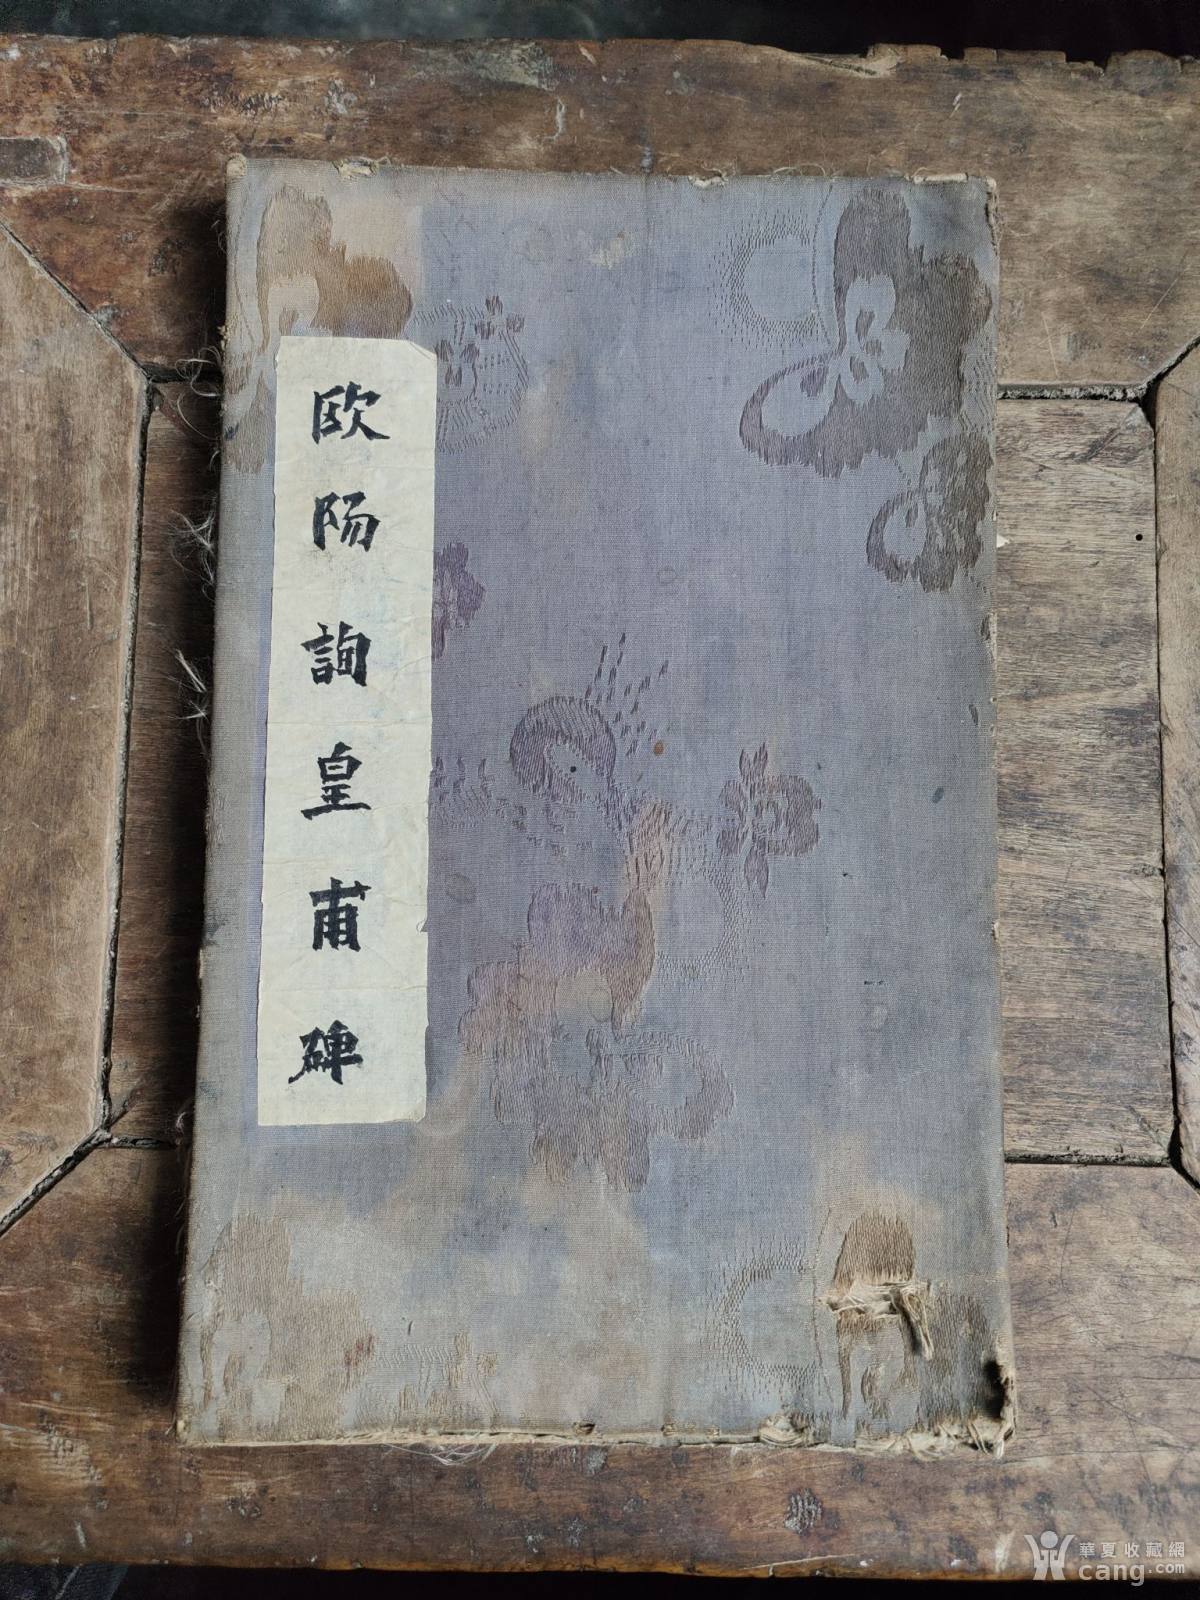 欧阳詢皇甫碑
華夏收藏網
cang.com